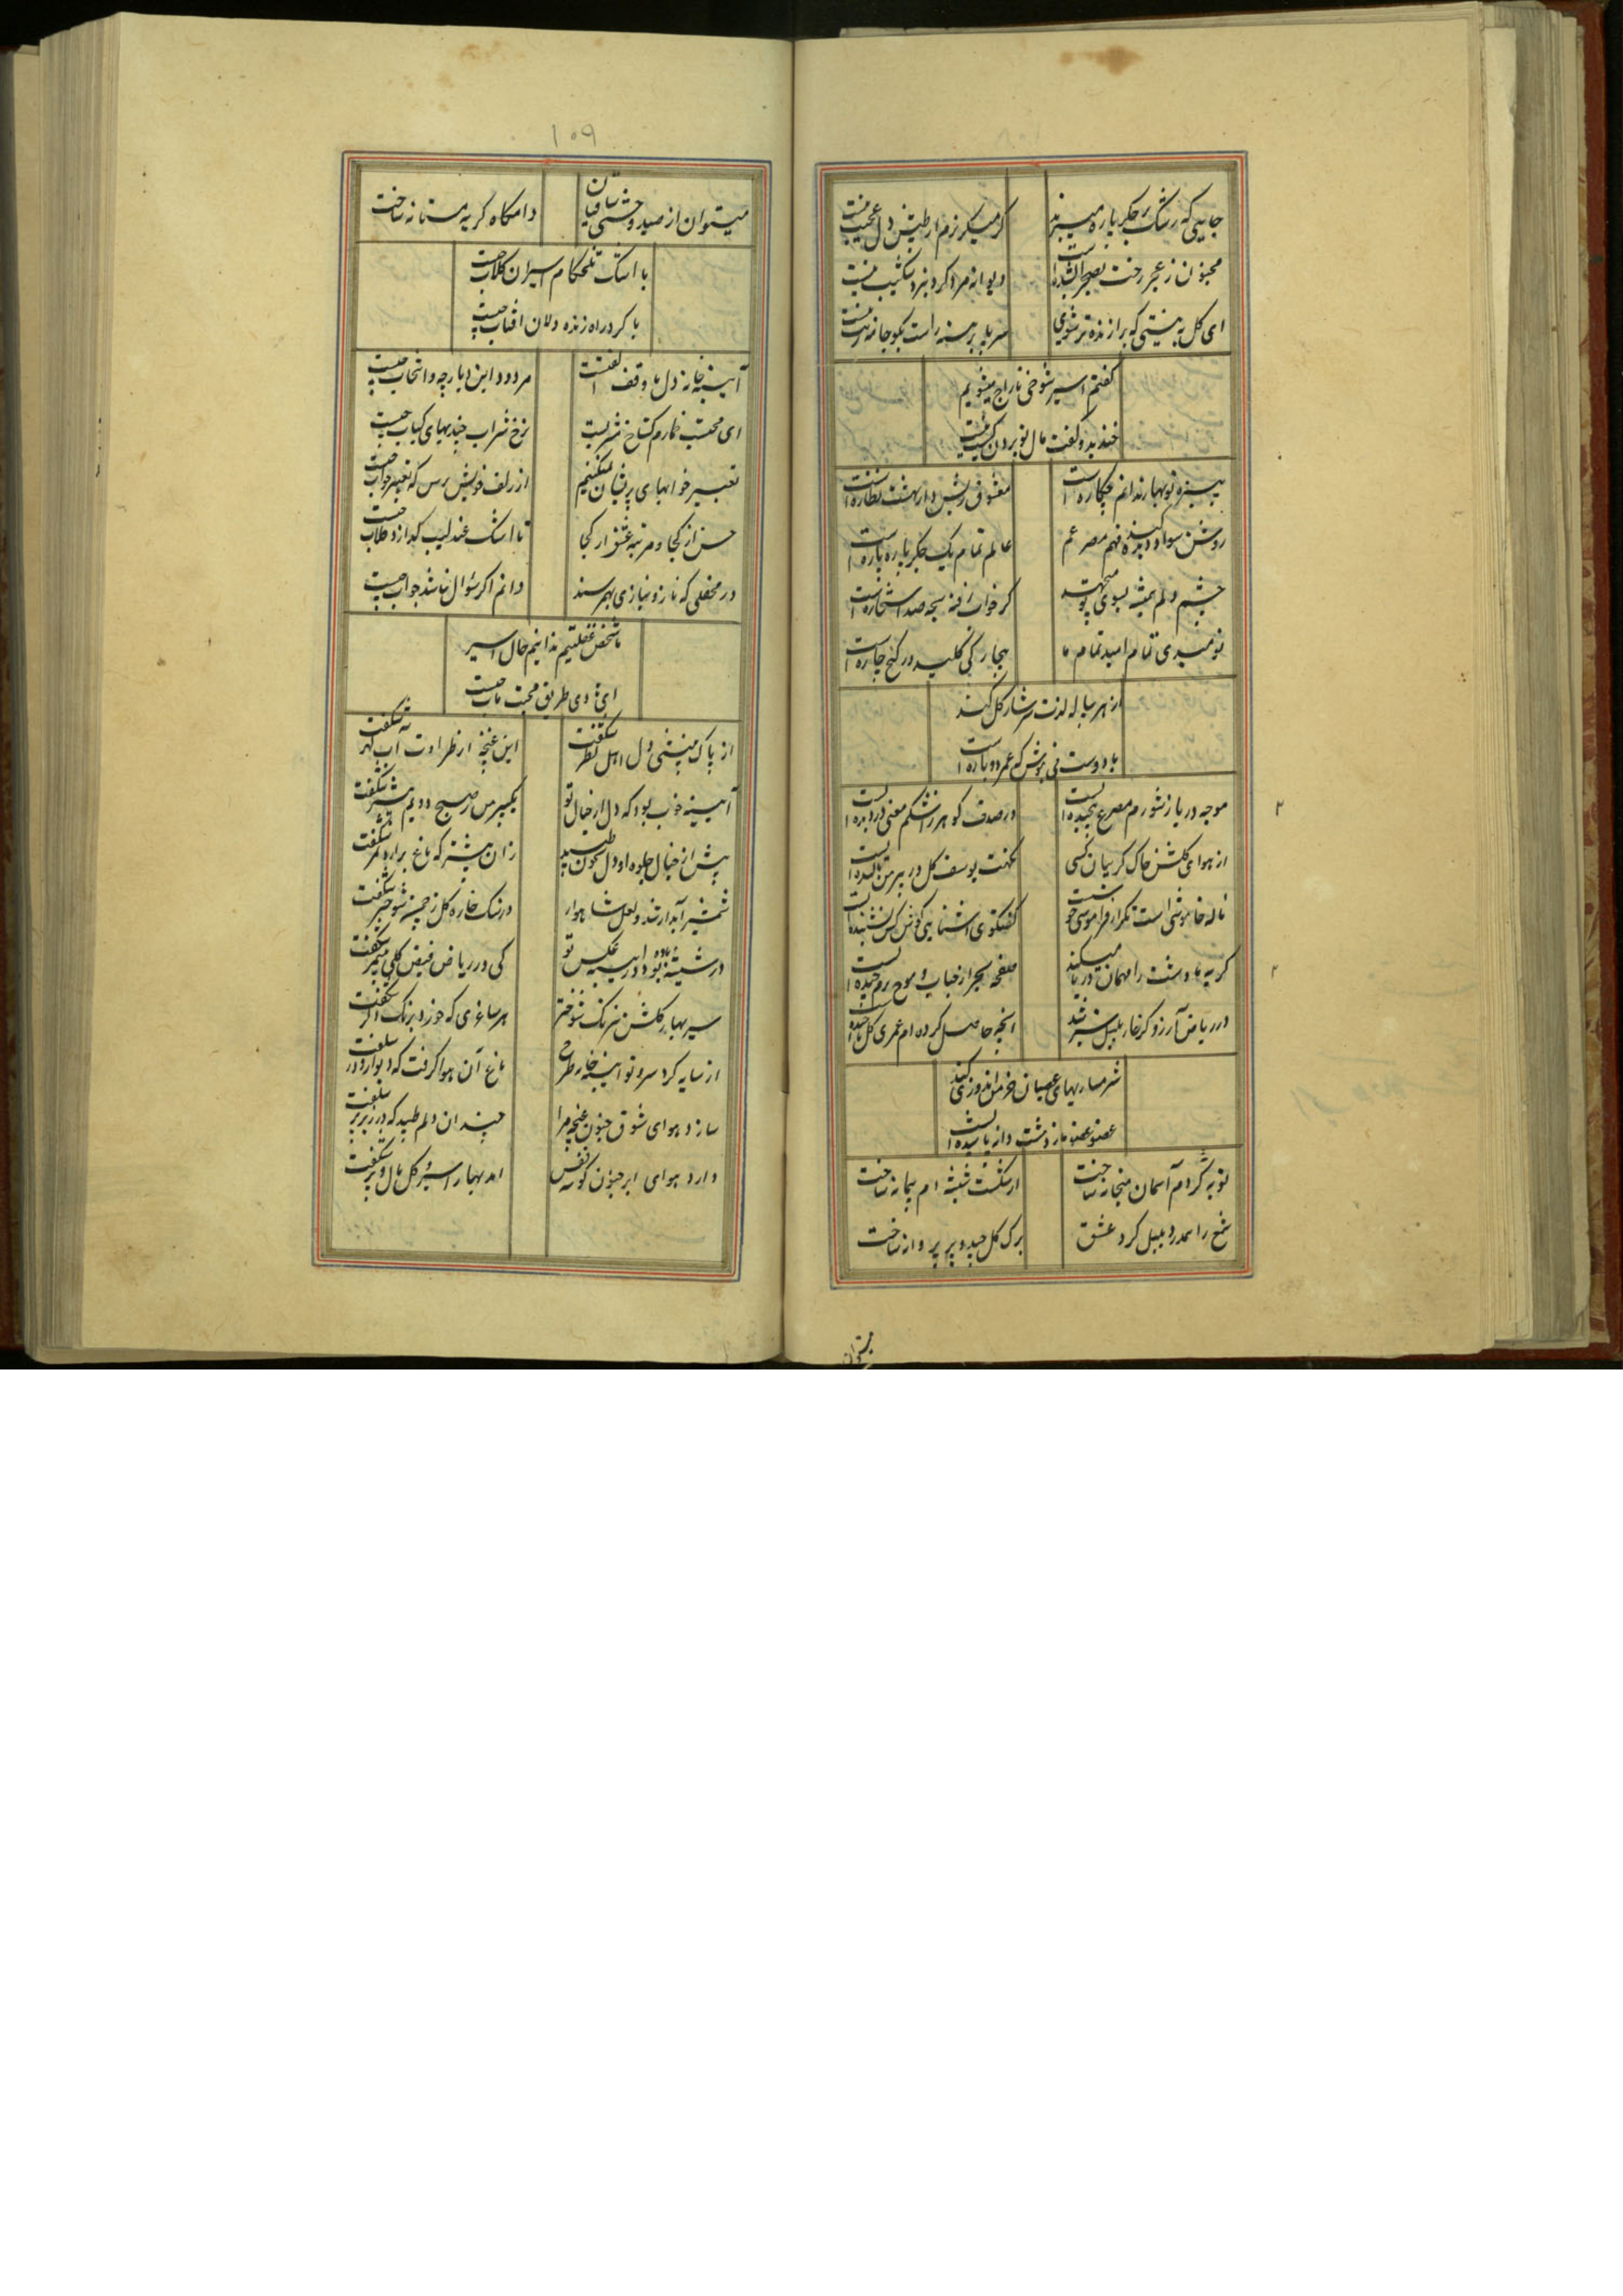 جایی که رشک بر جگر پاره میبرند
گر میگریزم از طپش دل عجیب نیست
مجنون ز عجز رخت بصحرا
دیوانه مرد کرد نبرد شکیب نیست
ای گل بهشتی که برازنده تر شوی
سر پا برهنه راست بگو جامه
گفتم اسیر شوخی تاراج میشویم
خندید و گفت مال تو بردن
نوبهار ندانم چکاره است
معشوق نظاره است
روشن سواد دیده
عالم تمام یک جگر پاره پاره است
چشم دلم همیشه بسوی
گر خواب رفته سبحه صد استخاره است
نومیدی تمام امید تمام ما
بیچارگی کلید در گنج چاره است
از هر پیاله لذت سرشار گل کند
با دوست می بنوش که عمر دوباره است
موجه دریا ز شورم مصرع پیچیده است
در صدف گوهر ز اشکم معنی دزدیده است
از هوای گلشن خاک گریبان کسی
نکهت یوسف گل در پیرهن بالیده است
ناله خاموشی است
گفتگوی آشنایی گوش کس نشنیده است
گریه ما دشت را مهمان دریا میکند
صفحه بحر از حباب و موج
در ریاض آرزو گر خار بلبل سبز شد
آنچه حاصل کرده ام عمری گل ناچیده است
شرمساریهای عصیان خرمن اندوزی کند
عضو عضو ما ز دشت دانه پاشیده است
توبه کردم آسمان میخانه ساخت
از شکست شیشه ام پیمانه ساخت
شمع را همدرد بلبل کرد عشق
برگ گل چید و پر پروانه ساخت
میتوان
۱۰۹
میتوان از صید وحشی
دامگاه گریه مستانه ساخت
با اشک تلخکام اسیران گلاب چیست
با گرد راه زنده دلان آفتاب چیست
آیینه خانه دل ما وقف الفتست
مردود این دیار چه و انتخاب چیست
ای محتسب خمارم گستاخ مشربست
نرخ شراب چند بهای کباب چیست
تعبیر خوابهای پریشان نمیکنیم
از زلف خویش پرس که تعبیر خواب چیست
حسن از کجا و مرتبه عشق از کجا
تا اشک عندلیب گدازد گلاب چیست
در محفلی که ناز و نیازی بهم رسند
دانم اگر سؤال نباشد جواب چیست
ما شخص غفلتیم ندانیم حال اسیر
طریق محبت
از پاک دل اهل نظر شکفت
این غنچه از طراوت آب گهر شکفت
آیینه خوب بود که دل از خیال تو
صبح دویم بیشتر شکفت
پیش از خیال جلوه او دل بخون طپید
زان پیشتر که باغ برآرد ثمر شکفت
شمشیر آبدار شد و لعل شاهوار
در سنگ خاره گل ز چشمه
در شیشه باده بود در آیینه عکس تو
کی در ریاض فیض گلی شکفت
سیر بهار گلشن نیرنگ
هر ساغری که خورد برنگ دگر شکفت
از سایه کرد سرو تو آیینه خانه طرح
باغ آن هوا گرفت که دیوار و در شکفت
سازد هوای شوق جنون غنچه مرا
چندان دلم طپید که در زیر پر شکفت
دارد هوای ابر جنون گوشه قفس
آمد بهار اسیر و گل بال و پر شکفت